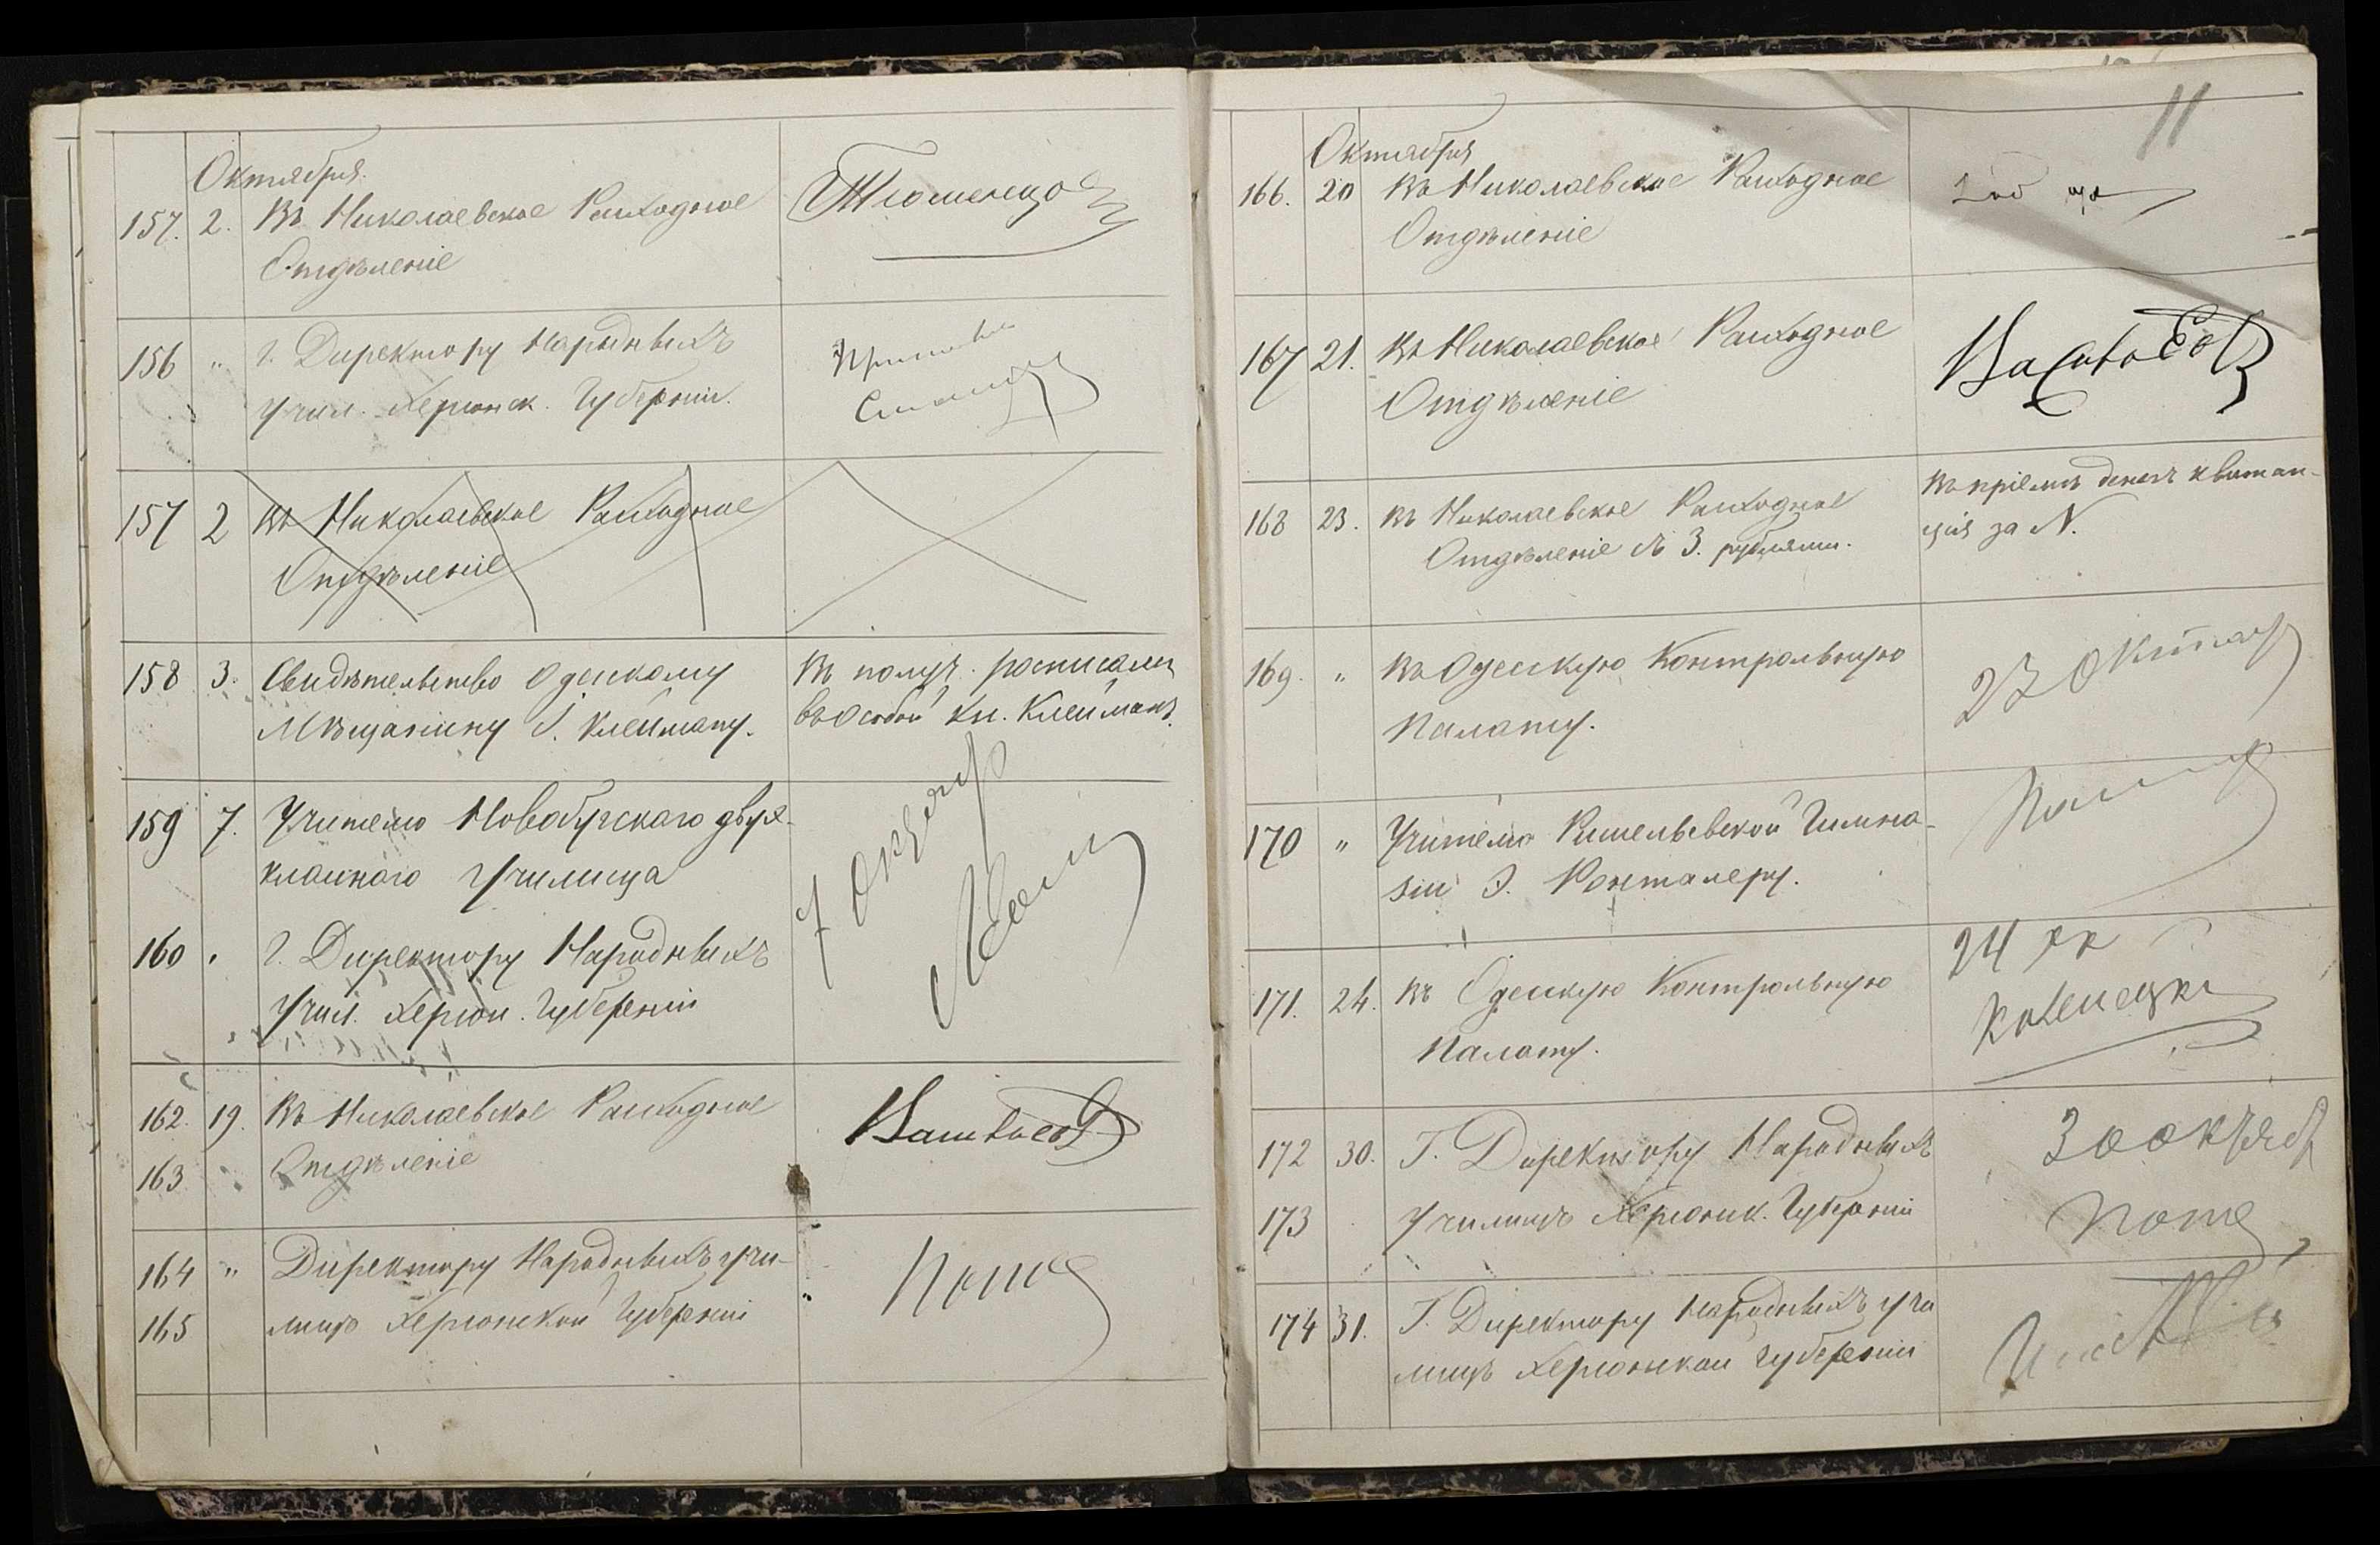 Октября.
157. 2. Въ Николаевское Расходное
Отдѣленіе
Тюменцов
156 " Г. Директору Народныхъ
Учил. Херсонск. Губерніи.
157 2 Въ Николаевское Расходное
Отдѣленіе
158 3. Свидѣтельство Одесскому
Мѣщанину І. Клейману.
Въ получ. росписалс
въ особой кн. Клейманъ.
159 7. Учителю Новобугскаго двух-
класснаго Училища
7 Октяб
160 " Г. Директору Народныхъ
Учил. Херсон. Губерніи
162. 19. Въ Николаевское Расходное
163 Отдѣленіе
164 " Директору Народныхъ Учи-
165 лищъ Херсонской Губерніи
11
Октября
166. 20 Въ Николаевское Расходное
Отдѣленіе
167 21. Въ Николаевское Расходное
Отдѣленіе
168 23. Въ Николаевское Расходное
Отдѣленіе съ 3. рублями.
Въ пріемѣ денегъ квитан-
ція за N.
169. " Въ Одесскую Контрольную
Палату.
23 Октяб
170 " Учителю Ришельевской Гимна-
зіи Э. Ронталеру.
171. 24. Въ Одесскую Контрольную
Палату.
24 ок
172 30. Г. Директору Народныхъ
173 Училищъ Херсонск. Губерніи
30 октяб
174 31. Г. Директору Народныхъ Учи
лищъ Херсонской Губерніи